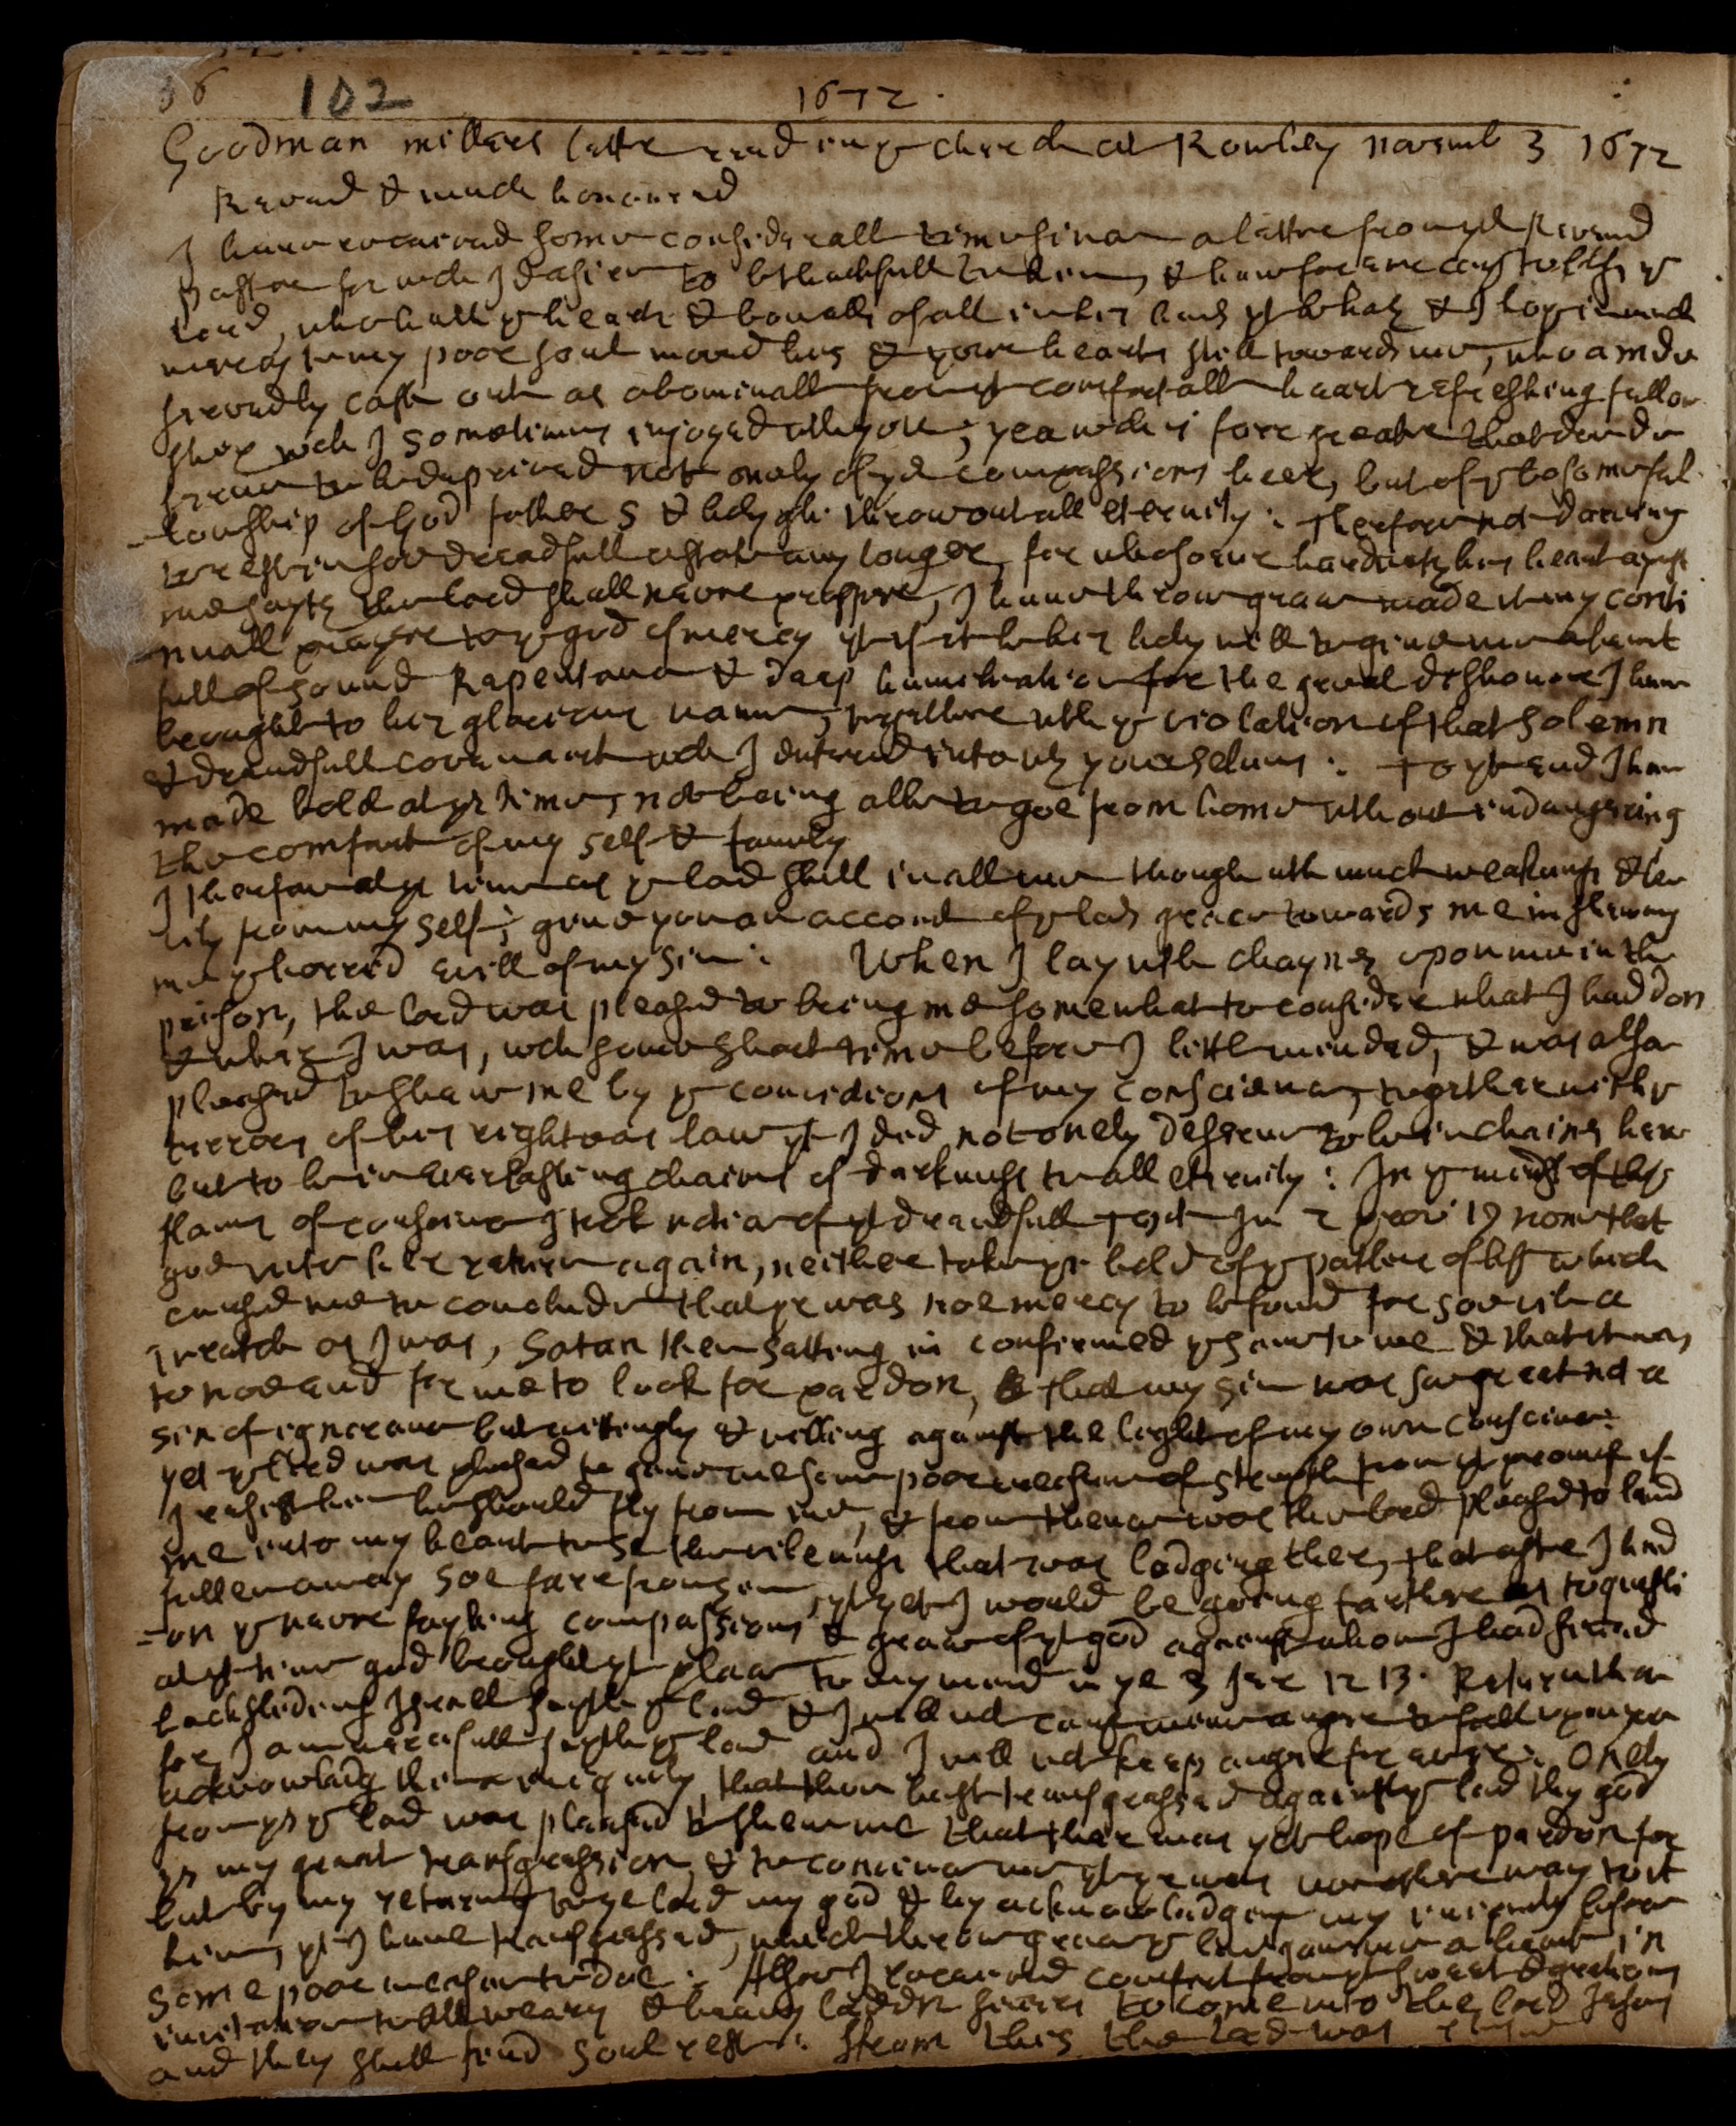 36 102 1672
Goodman millers letter read in ye church at Rowley novemb 3 1672
Revend & much honoured
I have received some considerall time since a letter from yr Reverend
pastor for wch I desier to be thankfull to him, & have for ane cause to blesse ye
lord, who hath ye hearts & bowells of all in his hands yt hath & I hope in much
mercy to my poor soul moved his & your hearts still towards me, who am de
servedly cast out as abominall from yt comfortall heart refreshing fellow
ship wch I sometimes injoyed with you, yea wch is farr greater that deude
serve to be deprived not onely of yr compassions heer, but of ye bosome fel
-lowship of God father S & holy gh: throwout all eternity: Therfore not daring
to rest in soe dreadfull estate any longer, for whosoever hardneth his heart agnst
me sayth the lord shall never prosper, I have throw grace made it my conti
-nuall prayer to ye god of mercy yt if it be his holy will to give me a heart
full of sound Repentance & deep humiliation for the great dishonore I have
brought to his glorious name, together with ye violation of that solemn
& dreadfull covenant wch I entered into with yourselves: To yt end I have
made bold at ys time, not being able to goe from home without indangering
the comfort of my self & family
I therfore at ys time as ye lord shall inable me though with much weaknes &
lity from my self: give you an account of ye lords grace towards me in shewing
me ye horrid evill of my sin: When I lay with chaynes upon me in the
prison, the lord was pleased to bring me somewhat to consider what I had don
& wher I was, wch some short time before I little minded, & was also
pleased to shew me by ye convictions of my conscience, together with ye
terrors of his righteous law yt I did not onely desserve to be in chaines here
but to be in everlasting chains of darknes to all eternity: In ye midst of this
flame of conscience I took notice of yt dreadfull text In 2 prov: 19 none that
goe unto her return again, neither take yy hold of ye pathes of life which
caused me to conclude that yr was noe mercy to be found for soe vile a
wretch as I was, Satan then setting in confirmed ye same to me & that it was
to noe end for me to look for pardon, & that my sin was so great not a
sin of ignorance but wittingly & willing against the light of my own conscience:
yet ye lord was pleased to give me some poor measure of strength from yt promise if
I resist him he should fly from me, & from thence was the lord pleased to lead
me into my heart to se the vilenes that was lodging ther, that after I had
fallen away soe farr from him, yt yet I would be going farther as to questi
-on ye never fayling compassions & grace of yt god against whom I had sinned
at ys time god brought yt place to my mind in ye 3 Jer 12 13. Return thou
backsliding Israell sayth ye lord & I will not cause mine anger to fall upon you
for I am mercifull sayth ye lord and I will not keep anger for ever: Onely
acknowledg thine iniquity, that thou hast transgressed against ye lord thy god
from ys ye lord was pleased to shew me that ther was yet hope of pardon for
ys my great transgression, & to convince me yt yr was noe other way to it
but by my returning to ye lord my god & by acknowledging my iniquity before
him, yt I have transgressed, which throw grace ye lord gave me a heart in
some poor measure to doe: Also I received comfort from yt sweet & gracious
invitation to all weary & heavy laden sinners to come unto the lord Jesus
and they shall find soul rest: From this the lord was